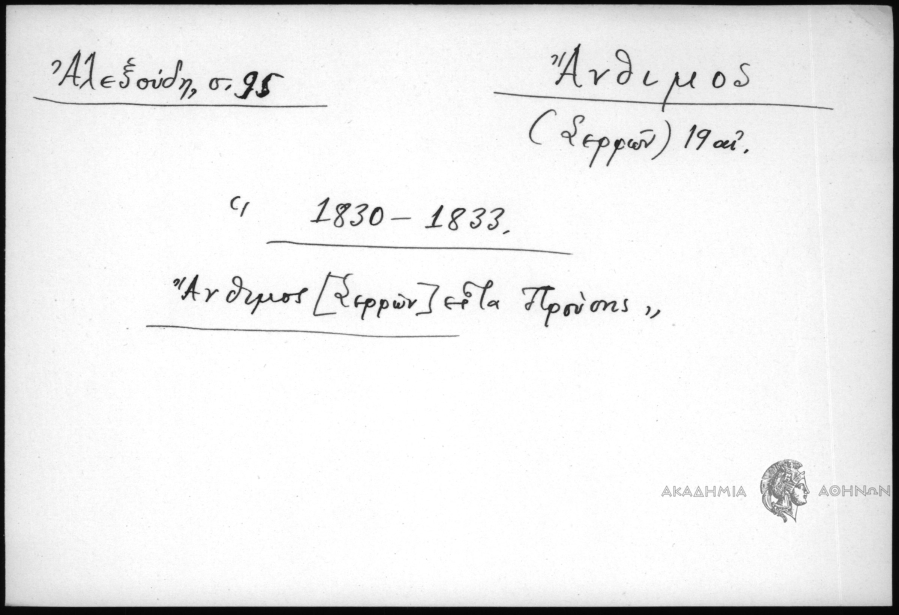 Ἀλεξούδη, σ. 95
Ἄνθιμος
(Σερρῶν) 19 αἰ.
" 1830 – 1833.
Ἄνθιμος [Σερρῶν] εἶτα Προύσης "
ΑΚΑΔΗΜΙΑ ΑΘΗΝΩΝ